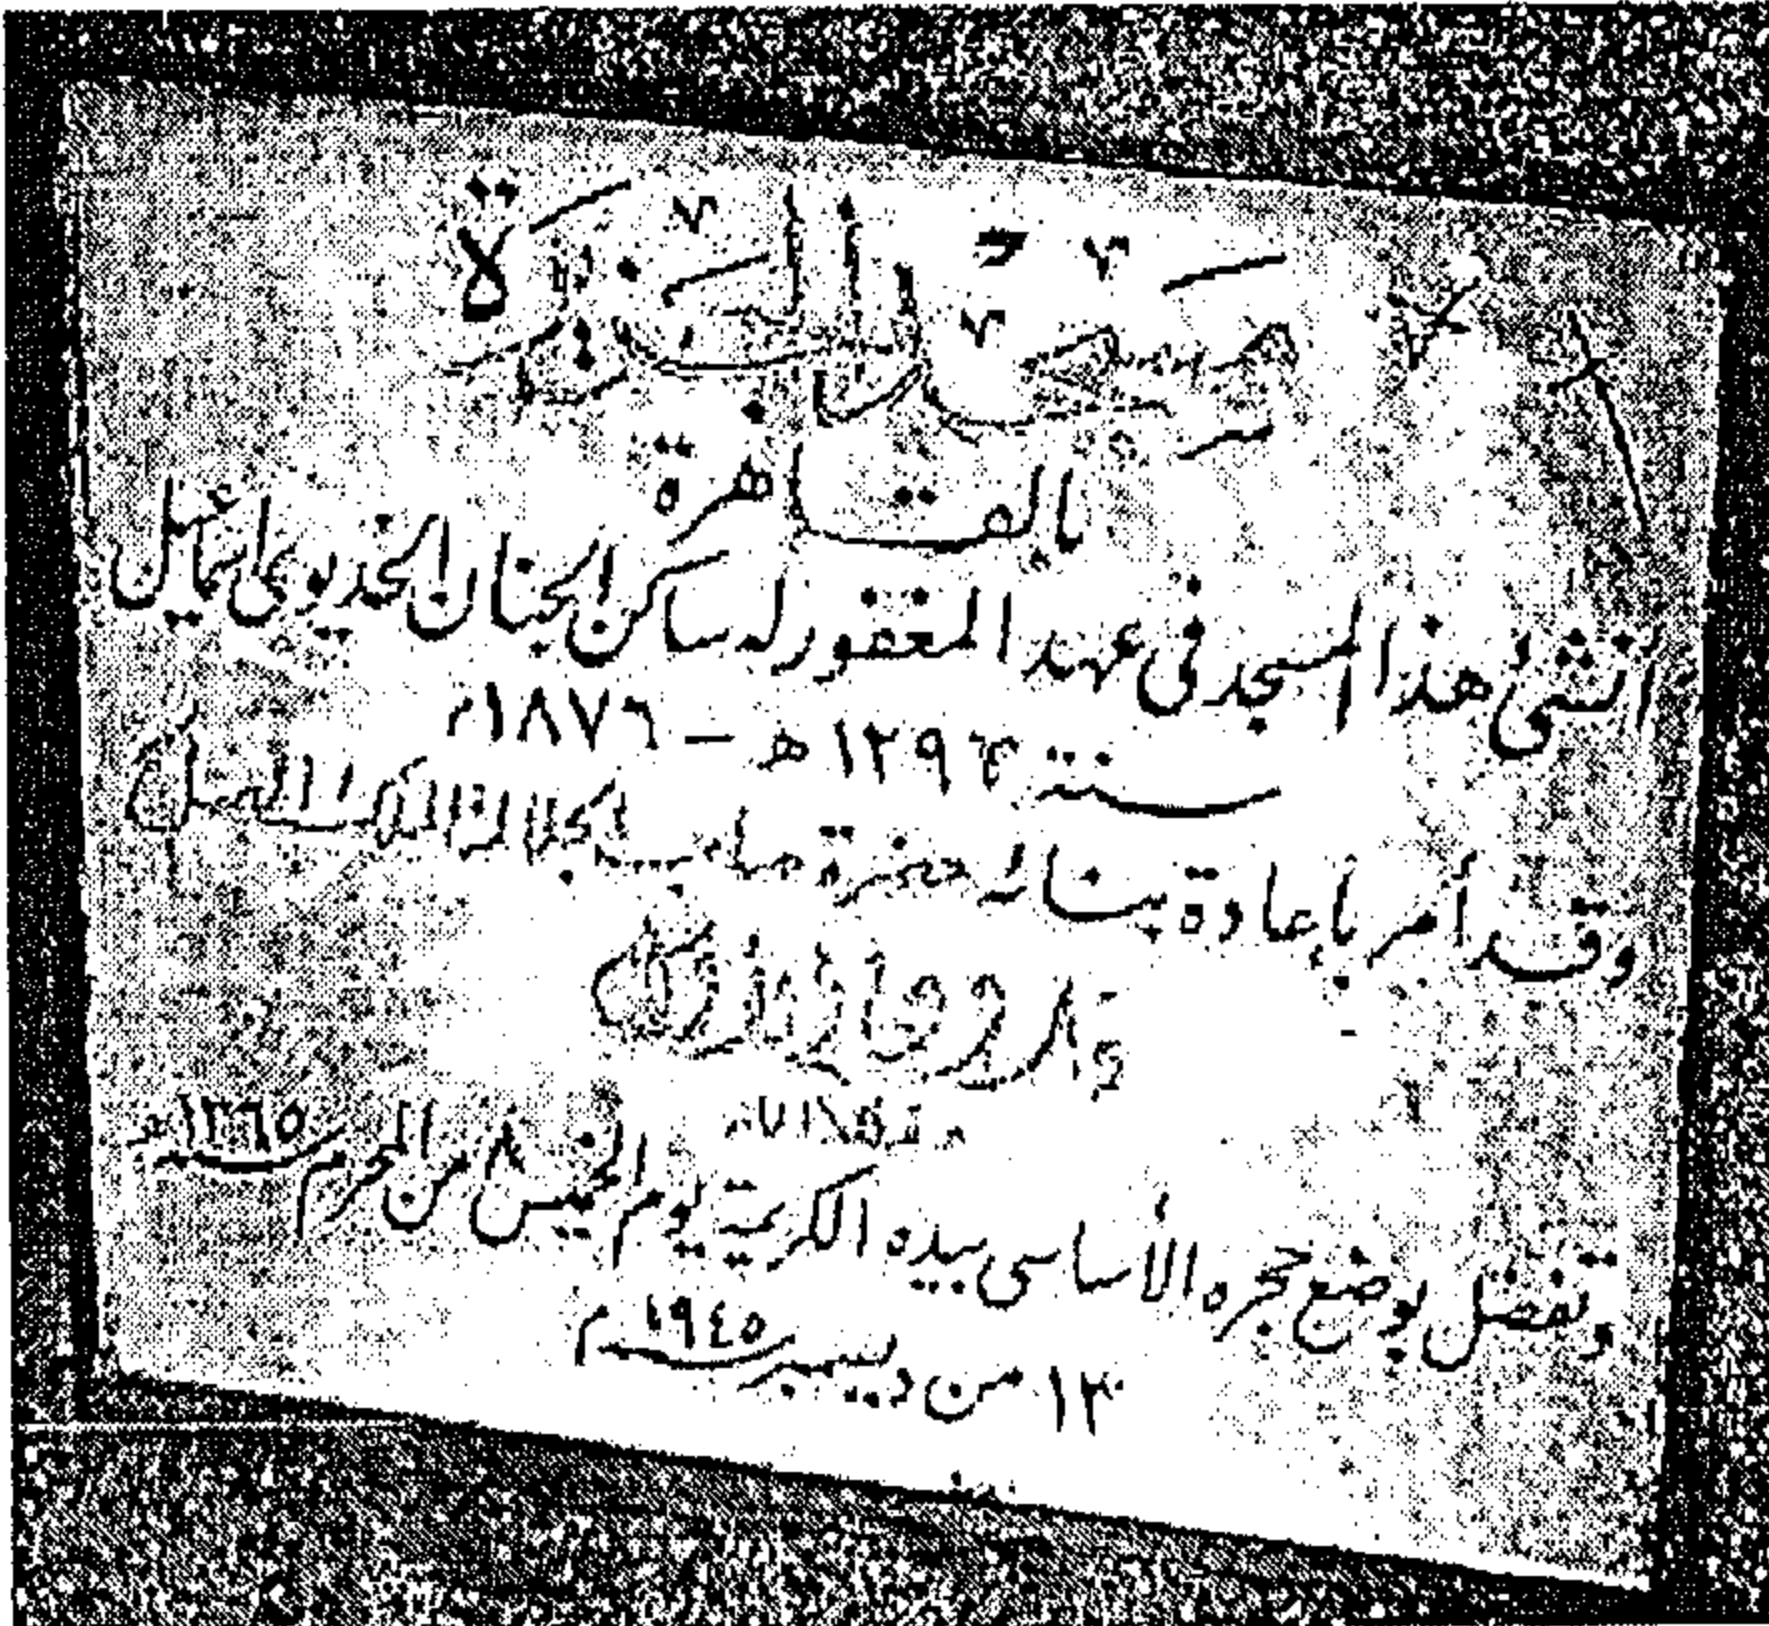 مسجد الجزيرة
بالقاهرة
أنشئ هذا المسجد فى عهد المغفور له ساكن الجنان الخديوى اسماعيل
سنة ١٢٩٣ هـ – ١٨٧٦م
وقد أمر بإعادة بنائه حضرة صاحب الجلالة الملك
فاروق الأول
وتفضل بوضع حجره الأساسى بيده الكريمة يوم الخميس ٨ من المحرم سنة ١٣٦٥هـ
١٣ من ديسمبر سنة ١٩٤٥م